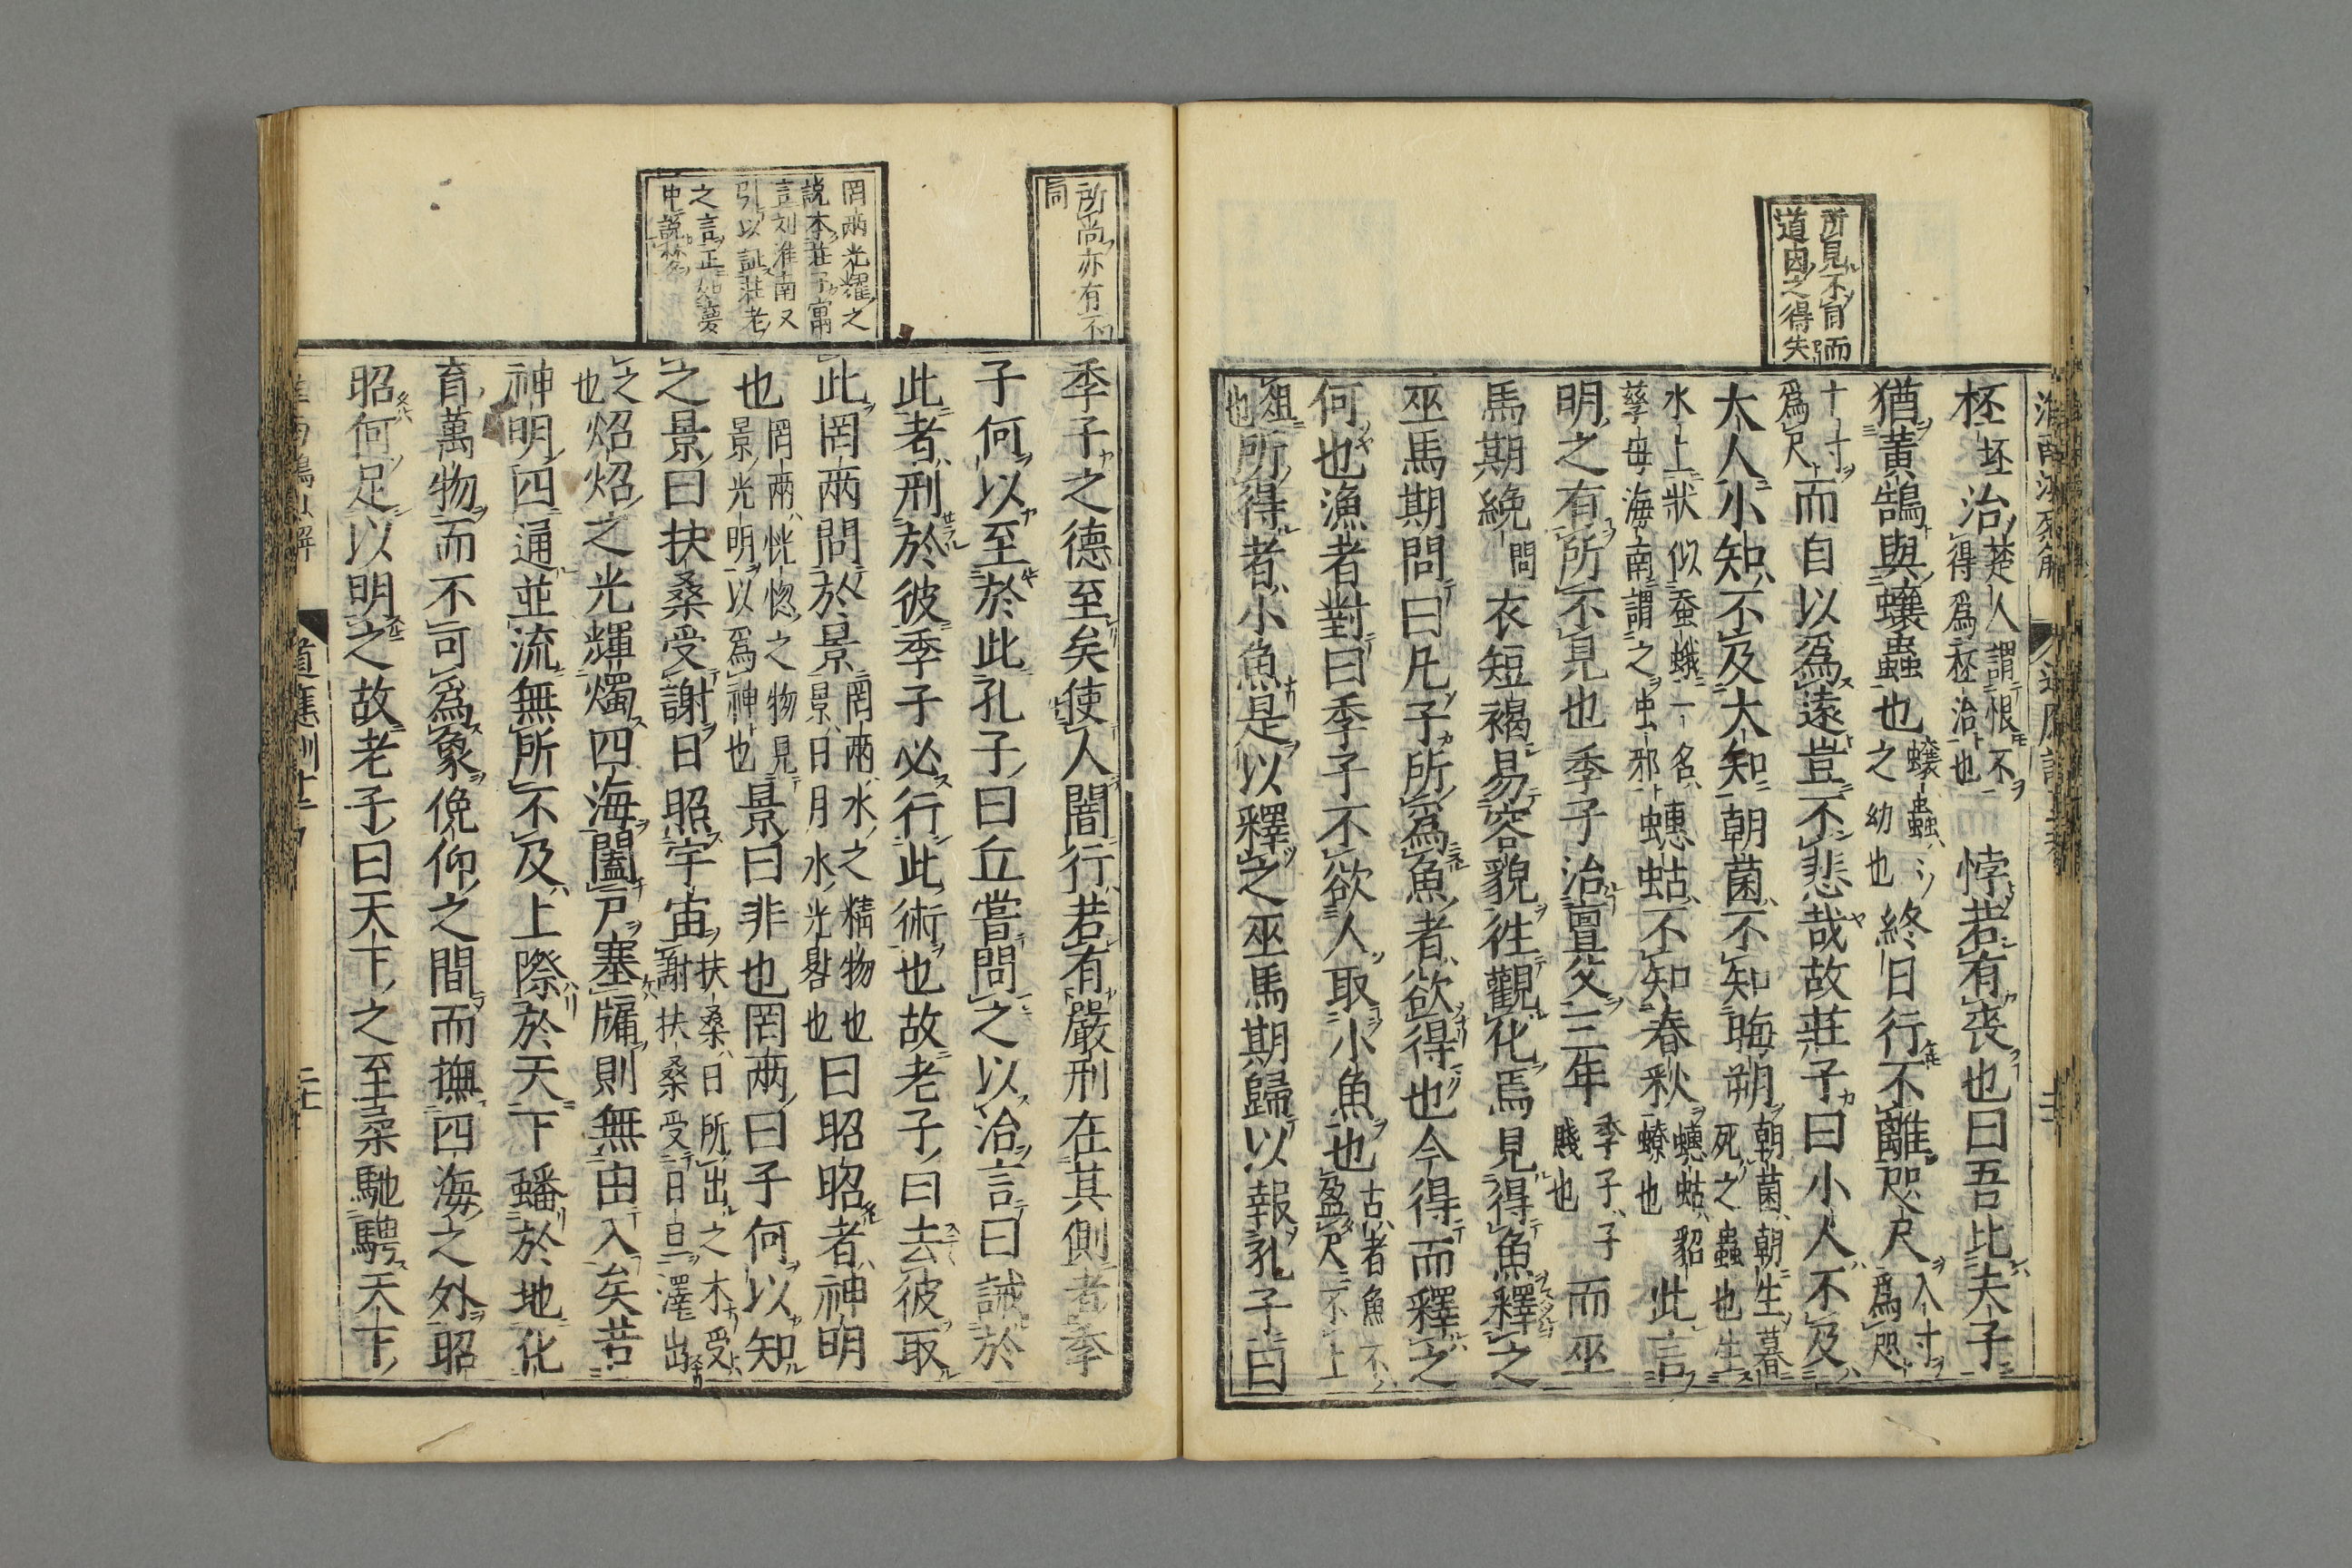 所見不盲而
道因之得失
柸坯治楚人謂恨不
得爲柸治也悖若有喪也曰吾比夫子
猶黃鵠與蠰蟲也蠰蟲
之幼也終日行不離咫尺八寸
爲咫
十寸
爲尺而自以爲遠豈不悲哉故莊子曰小人不及
大人小知不及大知朝菌不知晦朔朝菌朝生暮
死之蟲也生
水上狀似蚕蛾一名
孳母海南謂之虫邪蟪蛄不知春秋蟪蛄貂
蟟也此言
明之有所不見也季子治亶父三年季子子
賤也而巫
馬期絻問衣短褐易容貌往觀化焉見得魚釋之
巫馬期問曰凡子所爲魚者欲得也今得而釋之
何也漁者對曰季子不欲人取小魚也古者魚不
盈尺不上
俎
也所得者小魚是以釋之巫馬期歸以報孔子曰
所尚亦有不
同
罔兩光耀之
説本莊子寓
言刘淮南又
引以証莊老
之言正如夢
中説夢
季子之德至矣使人闇行若有嚴刑在其側者季
子何以至於此孔子曰丘嘗問之以治言曰誡於
此者刑於彼季子必行此術也故老子曰去彼取
此罔兩問於景罔兩水之精物也
景日月水光晷也曰昭昭者神明
也罔兩恍惚之物見
景光明以爲神也景曰非也罔兩曰子何以知
之景曰扶桑受謝日照宇宙扶桑日所出之木受
謝扶桑受日旦澤出
之
也炤炤之光輝燭四海闔戸塞牖則無由入矣若
神明四通並流無所不及上際於天下蟠於地化
育萬物而不可爲象俛仰之間而撫四海之外昭
昭何足以明之故老子曰天下之至柔馳騁天下
道應訓十二